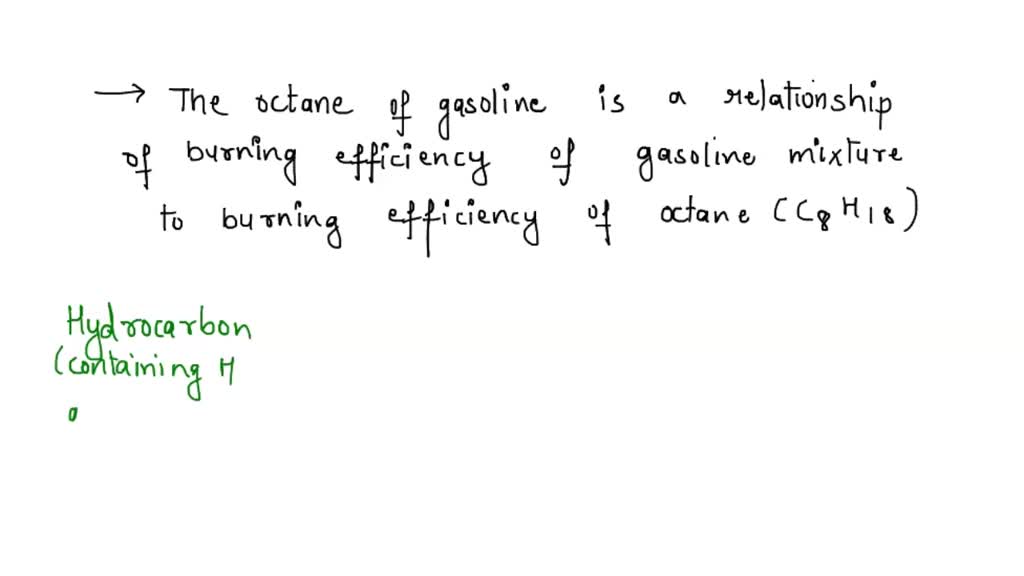 → The octane of gasoline is a relationship
of burning efficiency of gasoline mixture
to burning efficiency of octane (C₈H₁₈)
Hydrocarbon
(containing H
a